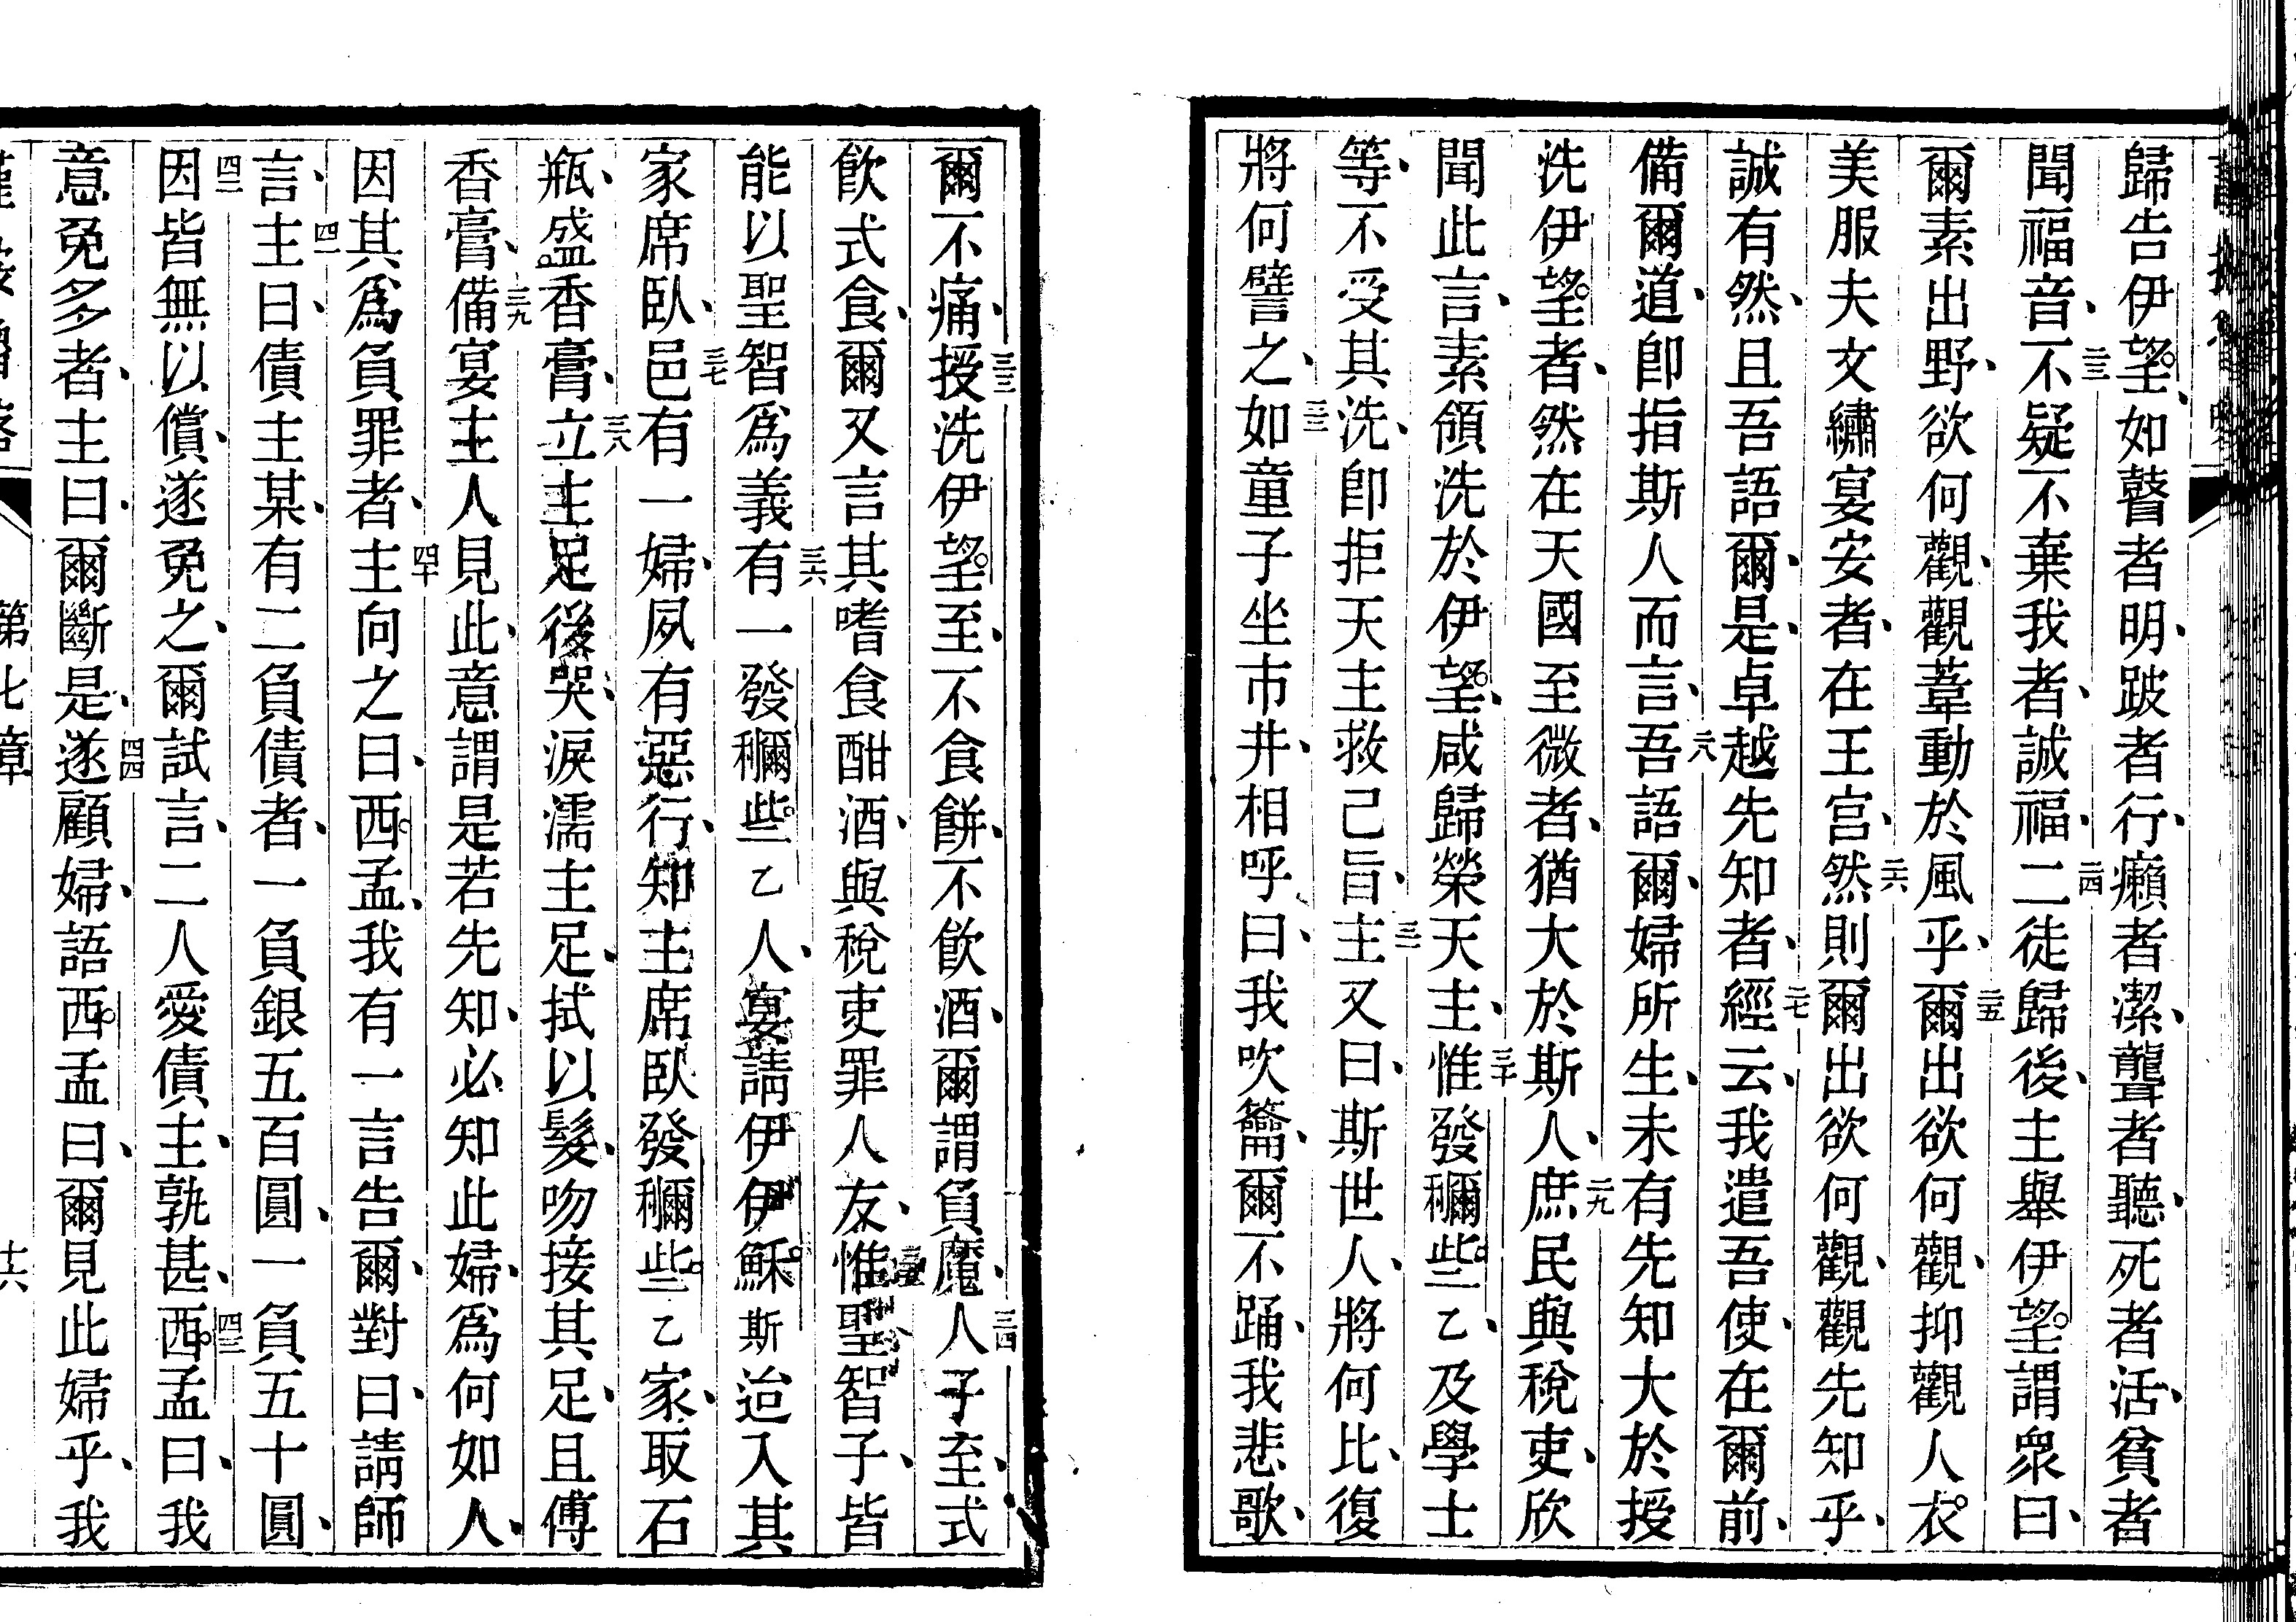 歸告伊望、如瞽者明、跛者行、癩者潔、聾者聽、死者活、貧者
聞福音、二三不疑不棄我者、誠福、二四二徒歸後、主舉伊望謂眾曰、
爾素出野、欲何觀、觀葦動於風乎、二五爾出欲何觀、抑觀人衣。
美服夫文繡宴安者、在王宮、二六然則爾出欲何觀、觀先知乎、
誠有然、且吾語爾、是卓越先知者、二七經云、我遣吾使、在爾前、
備爾道、卽指斯人而言、二八吾語爾、婦所生、未有先知大於授
洗伊望者、然在天國至微者、猶大於斯人、二九庶民與稅吏、欣
聞此言、素領洗於伊望、咸歸榮天主、三十惟發穪些乙、及學士
等、不受其洗、卽拒天主救己旨、三一主又曰、斯世人、將何比、復
將何譬之、三二如童子坐市井、相呼曰、我吹籥、爾不踊、我悲歌、
爾不痛、三三授洗伊望至、不食餅、不飲酒、爾謂負魔、三四人子至、式
飲式食、爾又言其嗜食酣酒、與稅吏罪人友、惟聖智子、皆
能以聖智爲義、三六有一發穪些乙人、宴請伊伊穌斯、迨入其
家席臥、三七邑有一婦、夙有惡行、知主席臥發穪些乙家、取石
瓶、盛香膏、三八立主足後哭、淚濡主足、拭以髮、吻接其足、且傅
香膏、三九備宴主人見此、意謂是若先知、必知此婦、爲何如人、
因其爲負罪者、四十主向之曰、西孟、我有一言告爾、對曰、請師
言、四一主曰、債主某、有二負債者、一負銀五百圓、一負五十圓、
四二因皆無以償、遂免之、爾試言、二人愛債主、孰甚、四三西孟曰、我
意免多者、主曰、爾斷是、四四遂顧婦、語西孟曰、爾見此婦乎、我
第七章